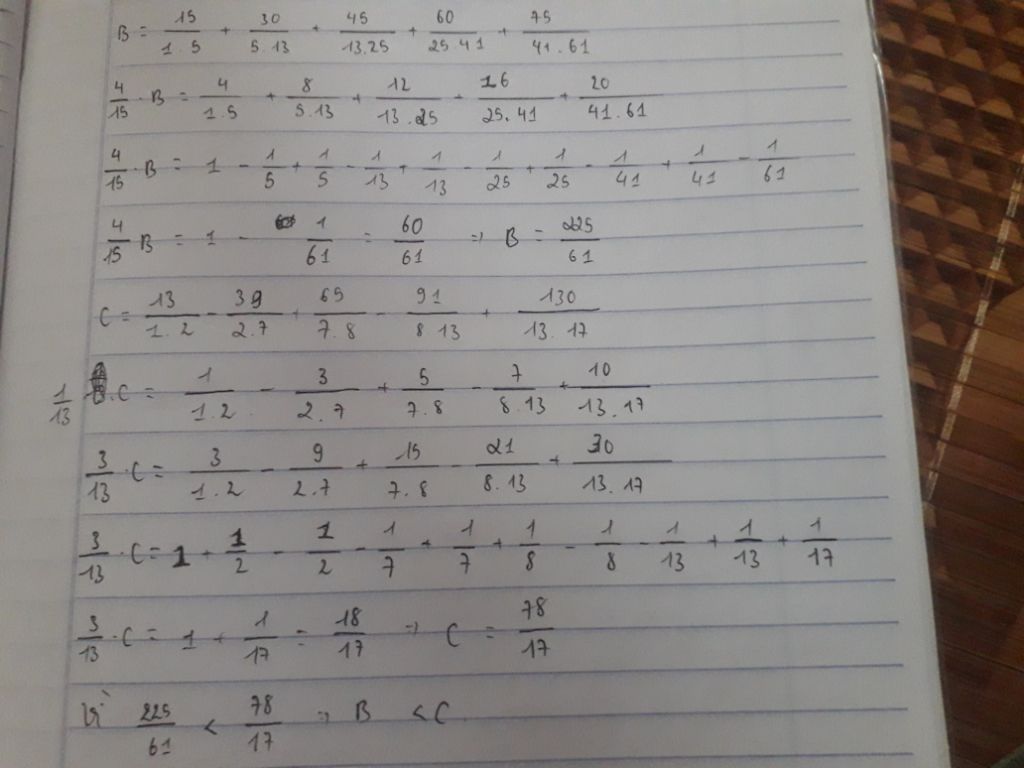 B = 15/1.5 + 30/5.13 + 45/13.25 + 60/25.41 + 75/41.61
4/15 . B = 4/1.5 + 8/5.13 + 12/13.25 + 16/25.41 + 20/41.61
4/15 . B = 1 - 1/5 + 1/5 - 1/13 + 1/13 - 1/25 + 1/25 - 1/41 + 1/41 - 1/61
4/15 B = 1 - 1/61 = 60/61 => B = 225/61
C = 13/1.2 - 39/2.7 + 65/7.8 - 91/8.13 + 130/13.17
1/13 . C = 1/1.2 - 3/2.7 + 5/7.8 - 7/8.13 + 10/13.17
3/13 . C = 3/1.2 - 9/2.7 + 15/7.8 - 21/8.13 + 30/13.17
3/13 . C = 1 + 1/2 - 1/2 - 1/7 + 1/7 + 1/8 - 1/8 - 1/13 + 1/13 + 1/17
3/13 . C = 1 + 1/17 = 18/17 => C = 78/17
Vì 225/61 < 78/17 => B < C